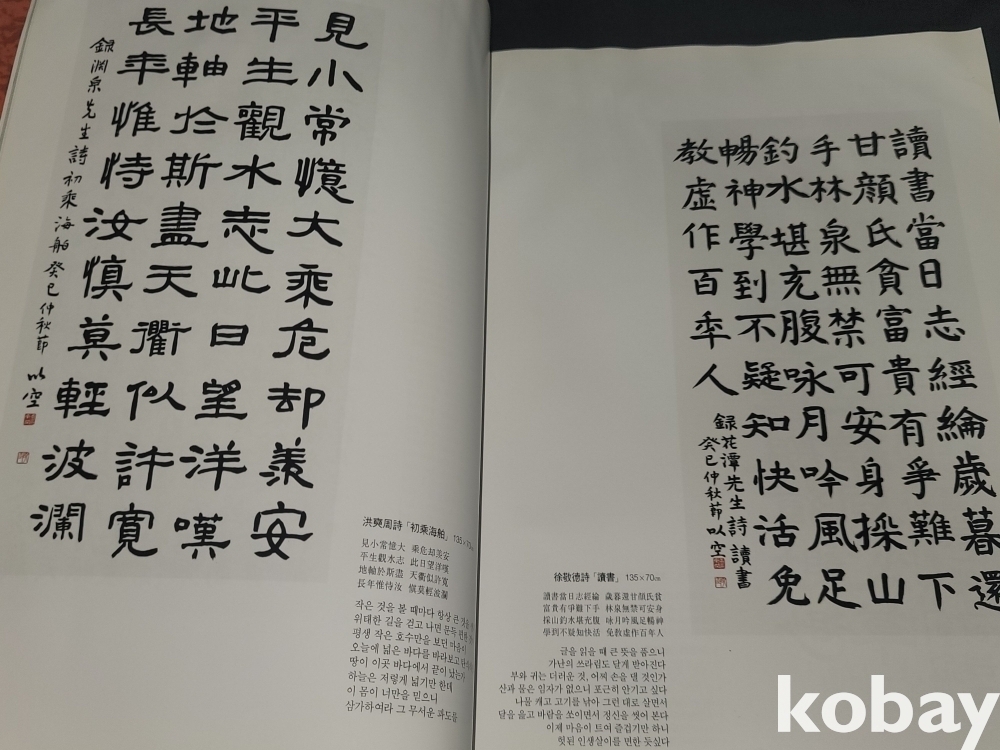 見小常憶大乘危却羨安
平生觀水志此日望洋嘆
地軸於斯盡天衢似許寬
長年惟恃汝慎莫輕波瀾
録淵泉先生詩初乘海舶癸巳仲秋節 以空
洪奭周詩「初乘海舶」 135×70㎝
見小常憶大 乘危却羨安
平生觀水志 此日望洋嘆
地軸於斯盡 天衢似許寬
長年惟恃汝 愼莫輕波瀾
작은 것을 볼 때마다 항상 큰 것을
위태한 길을 걷고 나면 문득 편한
평생 작은 호수만을 보던 마음이
오늘에 넓은 바다를 바라보고
땅이 이곳 바다에서 끝이 났는가
하늘은 저렇게 넓기만 한데
이 몸이 너만을 믿으니
삼가하여라 그 무서운 파도를
讀書當日志經綸歲暮還
甘顔氏貧富貴有爭難下
手林泉無禁可安身採山
釣水堪充腹咏月吟風足
暢神學到不疑知快活免
教虛作百秊人
録花潭先生詩讀書
癸巳仲秋節以空
徐敬德詩「讀書」 135×70㎝
讀書當日志經綸 歲暮還甘顔氏貧
富貴有爭難下手 林泉無禁可安身
採山釣水堪充腹 咏月吟風足暢神
學到不疑知快活 免教虛作百年人
글을 읽을 때 큰 뜻을 품으니
가난의 쓰라림도 달게 받아진다
부와 귀는 더러운 것, 어찌 손을 댈 것인가
산과 물은 임자가 없으니 포근히 안기고 싶다
나물 캐고 고기를 낚아 그런 대로 살면서
달을 읊고 바람을 쏘이면서 정신을 씻어 본다
이제 마음이 트여 즐겁기만 하니
헛된 인생살이를 면한 듯싶다
kobay